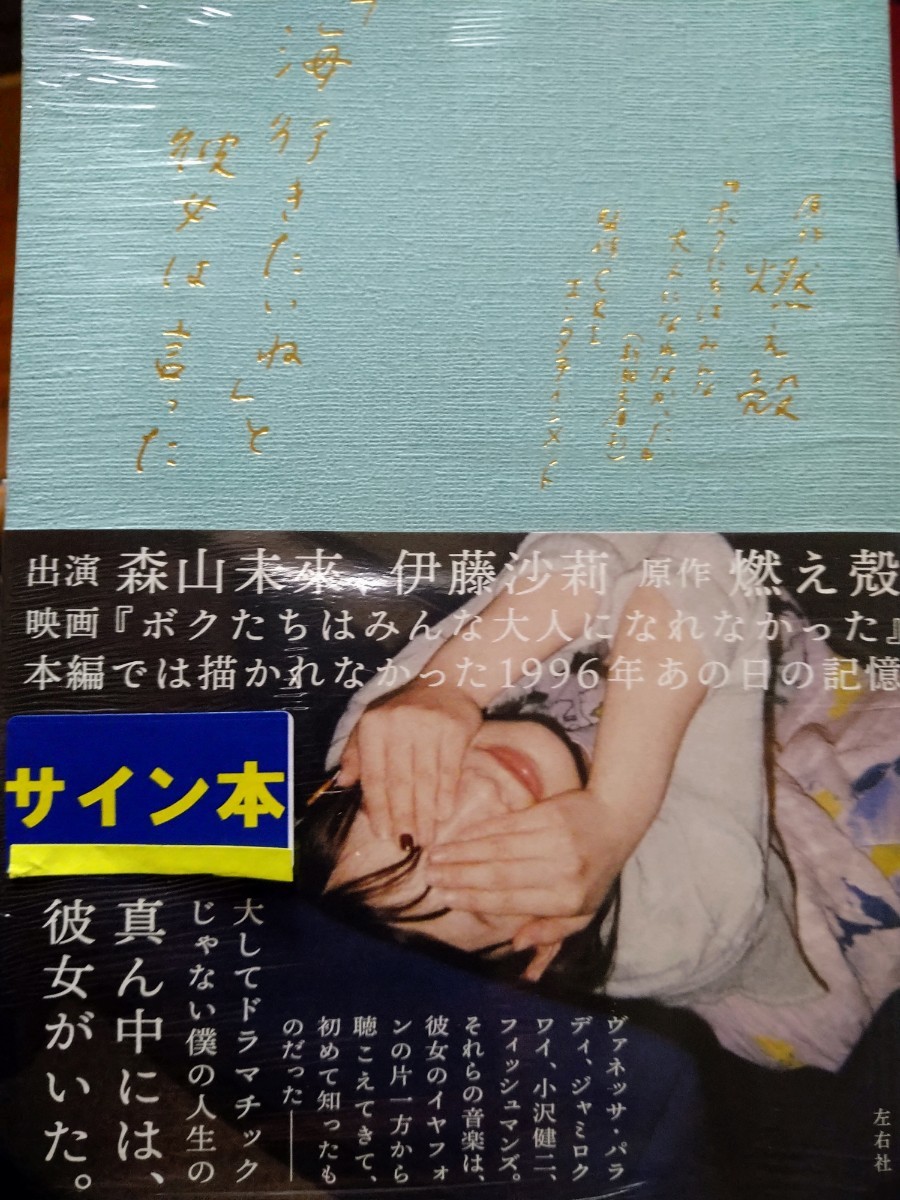 「海行きたいね」と
彼女は言った
原作 燃え殻
『ボクたちはみんな
大人になれなかった』
(新潮文庫刊)
エンタテインメント
出演 森山未來、伊藤沙莉 原作 燃え殻
映画『ボクたちはみんな大人になれなかった』
本編では描かれなかった1996年あの日の記憶
サイン本
ヴァネッサ・パラ
ディ、ジャミロク
ワイ、小沢健二、
フィッシュマンズ。
それらの音楽は、
彼女のイヤフォ
ンの片一方から
聴こえてきて、
初めて知ったも
のだった――
大してドラマチック
じゃない僕の人生の
真ん中には、
彼女がいた。
左右社